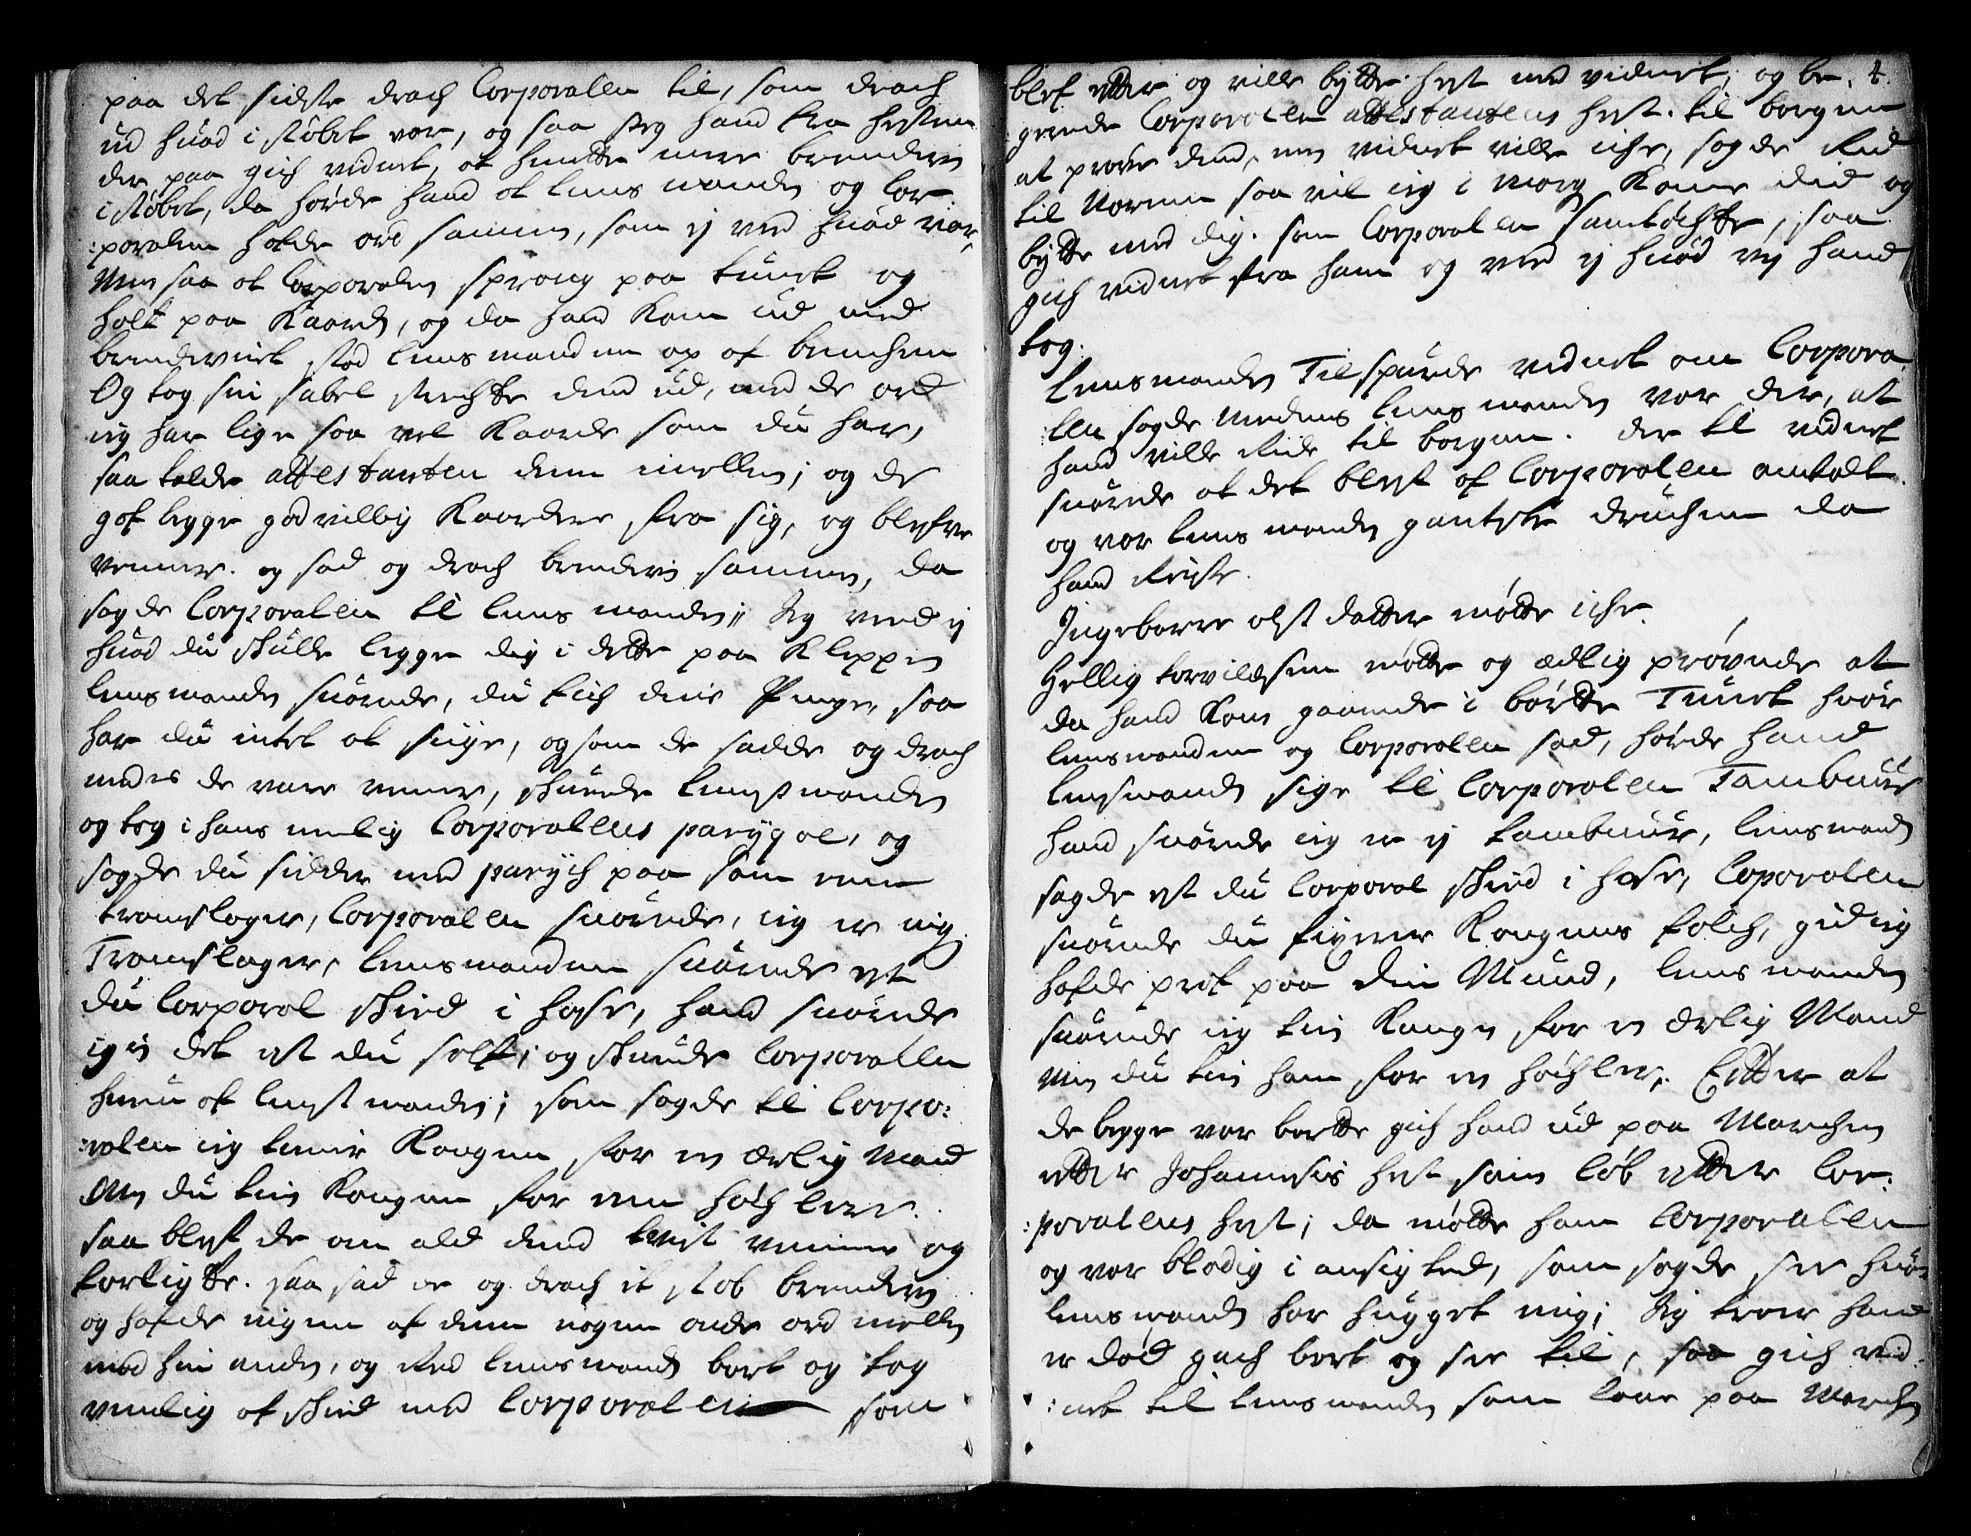 paa det sidste drach Corporallen til, som drach
ud huad i støbet var, og saa steg hand fra hesten
der paa gich vidnet, at hendtte mere brendevin
i støbet, da hørde hand at lens manden og Cor
:poralen hafde ord samen, som ej ved huad var,
Men saa at Corporalen sprang paa tunet og
holt paa Kaarde, og da hand kom ud med
brendevinet, stod lens manden op af benchen
Og tog sin sabel strechte dend ud, med de ord
jeg har lige saa vel Kaarde som du har,
saa talde attestanten dem imellem; og de
gaf begge godvillig Kaardene fra sig, og blefve
venner. og sad og drach brendevin sammen, da
sagde Corporalen til lens manden; Jeg veed ej
huad du skulle legge dig i dette paa Kleppen
lens manden suarede, du fich dine Penge, saa
har du intet at sige, og som de sadde og drach
medens de vare venner, skuede lensmanden
og tog i hans nemlig Corporallens parygge, og
sagde du sidder med parych paa som een
tromslager, Corporalen suarede, jeg er ing
Tromslager, lensmanden suarede est
du Corporal skied i hose, hand suarede
igien det est du self; og skuede Corporallen
huen af lenstmanden; som sagde til Corpo:
:ralen jeg tiener Kongen for en ærlig Mand
Men du tien Kongen for een høchler.
saa blef de om ald dend tvist venner og
forligte. saa sad de og drach it støb brendevin
og hafde ingen af dem nogen onde ord mellem
mod hin anden, og Red lens mand bort og tog
venlig afskied med Corporalen som
blef etter og ville bytte hest med vidnet, og be 4.
gerede Corporalen attestantens hest til borgen
at prøve dend, men vidnet ville iche, sagde Rid
til Voren saa vil jeg i morg Kome did og
bytte med dig. som Corporalen samtøchte, saa
gich vidnet fra ham og ved ej huad vej hand
tog.
Lensmanden Tilspurde vidnet om Corpora
len sagde medens lens manden var der, at
hand ville Ride til borgen. der til vidnet
suarede at det blef af Corporalen omtalt.
og var lens manden gantske druchen da
hand Reiste.
Ingeborre olstdatter møtte iche.
Hellig torvildsen møtte og ædlig prøvede at
da hand kom gaaende i bortte Tunet huor
lensmanden og Corporalen sad, hørde hand
lensmand sige til Corporalen Tambuur
hand suarede jeg er ej tambuur, lensmand
sagde est du Corporal skied i hose, Coporalen
suarede du Kongens folch, gid jeg
hafde præk paa din Mund, lens manden
suarede jeg tien Konge for en ærlig Mand
Men du tien ham for en høchler. Etter at
de begge var bortte gich hand ud paa Marchen
etter Johannesis hest som løb etter Cor:
:poralens hest; da møtte ham Corporalen
og var blodig i ansigted, som sagde see huor
lensmand har hugget mig; Jeg troer hand
er død gach bort og see til, saa gich vid
:net til lens manden som laae paa Marchen